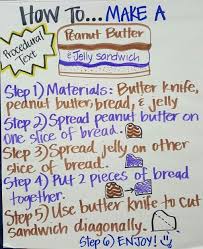 HOW TO... MAKE A
Procedural
Text
Peanut Butter
& Jelly sandwich
Step 1) Materials: Butter knife,
peanut butter, bread, & jelly
Step 2) Spread peanut butter on
one slice of bread..
Step 3) Spread jelly on other
slice of bread..
Step 4) Put 2 pieces of bread
together.
Step 5) Use butter knife to cut
sandwich diagonally.
Step 6) ENJOY!